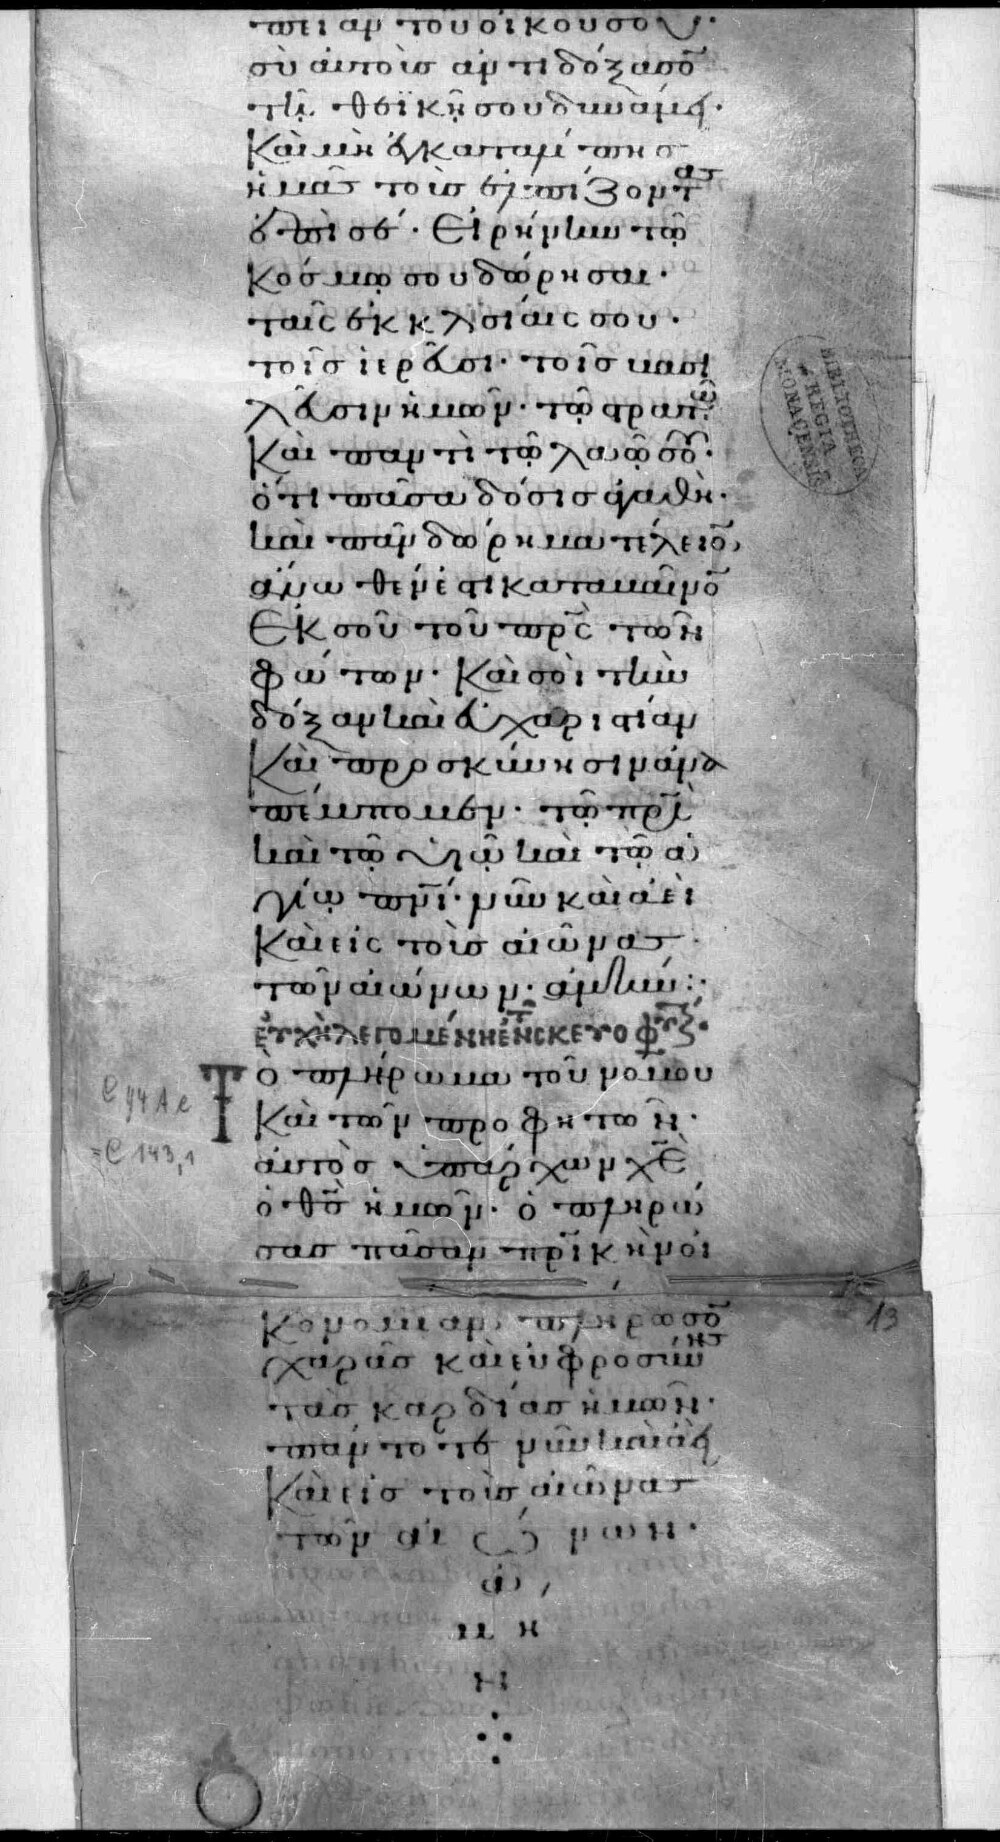 πειαν τοῦ οἴκου σου·
σὺ αὐτοὺσ ἀντιδόξασο̅
τῆ θεϊκῆ σου δυνάμει·
Καὶ μὴ ἐγκαταλίπησ
ἡμᾶσ τοὺσ ἐλπίζοντασ
ἐπὶ σέ· Εἰρήνην τῷ
κόσμῳ σου δώρησαι·
ταῖς ἐκκλησίαις σου·
τοῖσ ἱερεῦσι· τοῖσ βασι
λεῦσιν ἡμῶν· τῷ στρατῷ
Καὶ παντὶ τῷ λαῷ σου·
ὅτι πᾶσα δόσισ ἀγαθὴ·
καὶ πᾶν δώρημα τέλειο̅
ἄνωθέν ἐστι καταβαῖνο̅
Εκ σοῦ τοῦ πρ̅ς τῶν
φώτων· Καὶ σοὶ τὴν
δόξαν καὶ εὐχαριστίαν
Καὶ προσκύνησιν ἀνα
πέμπομεν· τῷ πρ̅ι
καὶ τῷ υἱῷ καὶ τῷ ἁ
γίῳ πν̅ι· νῦν καὶ ἀεὶ
Καὶ εἰς τοὺσ αἰῶνασ
τῶν αἰώνων· ἀμήν:·
ΕΥΧῊ ΛΕΓΟΜΈΝΗ ἘΝ Τ ΣΚΕΥΟΦΥΛΞ·
Τὸ πλήρωμα τοῦ νόμου
Καὶ τῶν προφητῶν·
αὐτὸσ ὑπάρχων χ̅ε
ὁ θ̅σ ἡμῶν· ὁ πληρώ
σασ πᾶσαν πρ̅ικὴν οἰ
Κονομίαν· πλήρωσο̅
χαρᾶσ καὶ εὐφροσύνησ
τὰσ καρδίασ ἡμῶν·
πάντοτε νῦν καὶ ἀεὶ
Καὶ εἰσ τοὺσ αἰῶνασ
τῶν αἰώνων·
ἀ
μη
ν
13
C 94 A e
=C 143,1
BIBLIOTHECA
REGIA
MONACENSIS